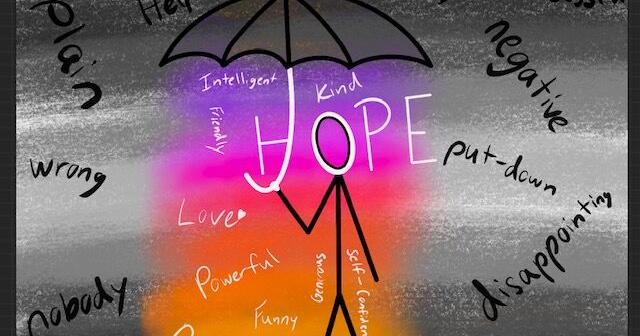 plain
Help
negative
Intelligent
Kind
Friendly
HOPE
wrong
put-down
Love
disappointing
Powerful
Generous
nobody
Funny